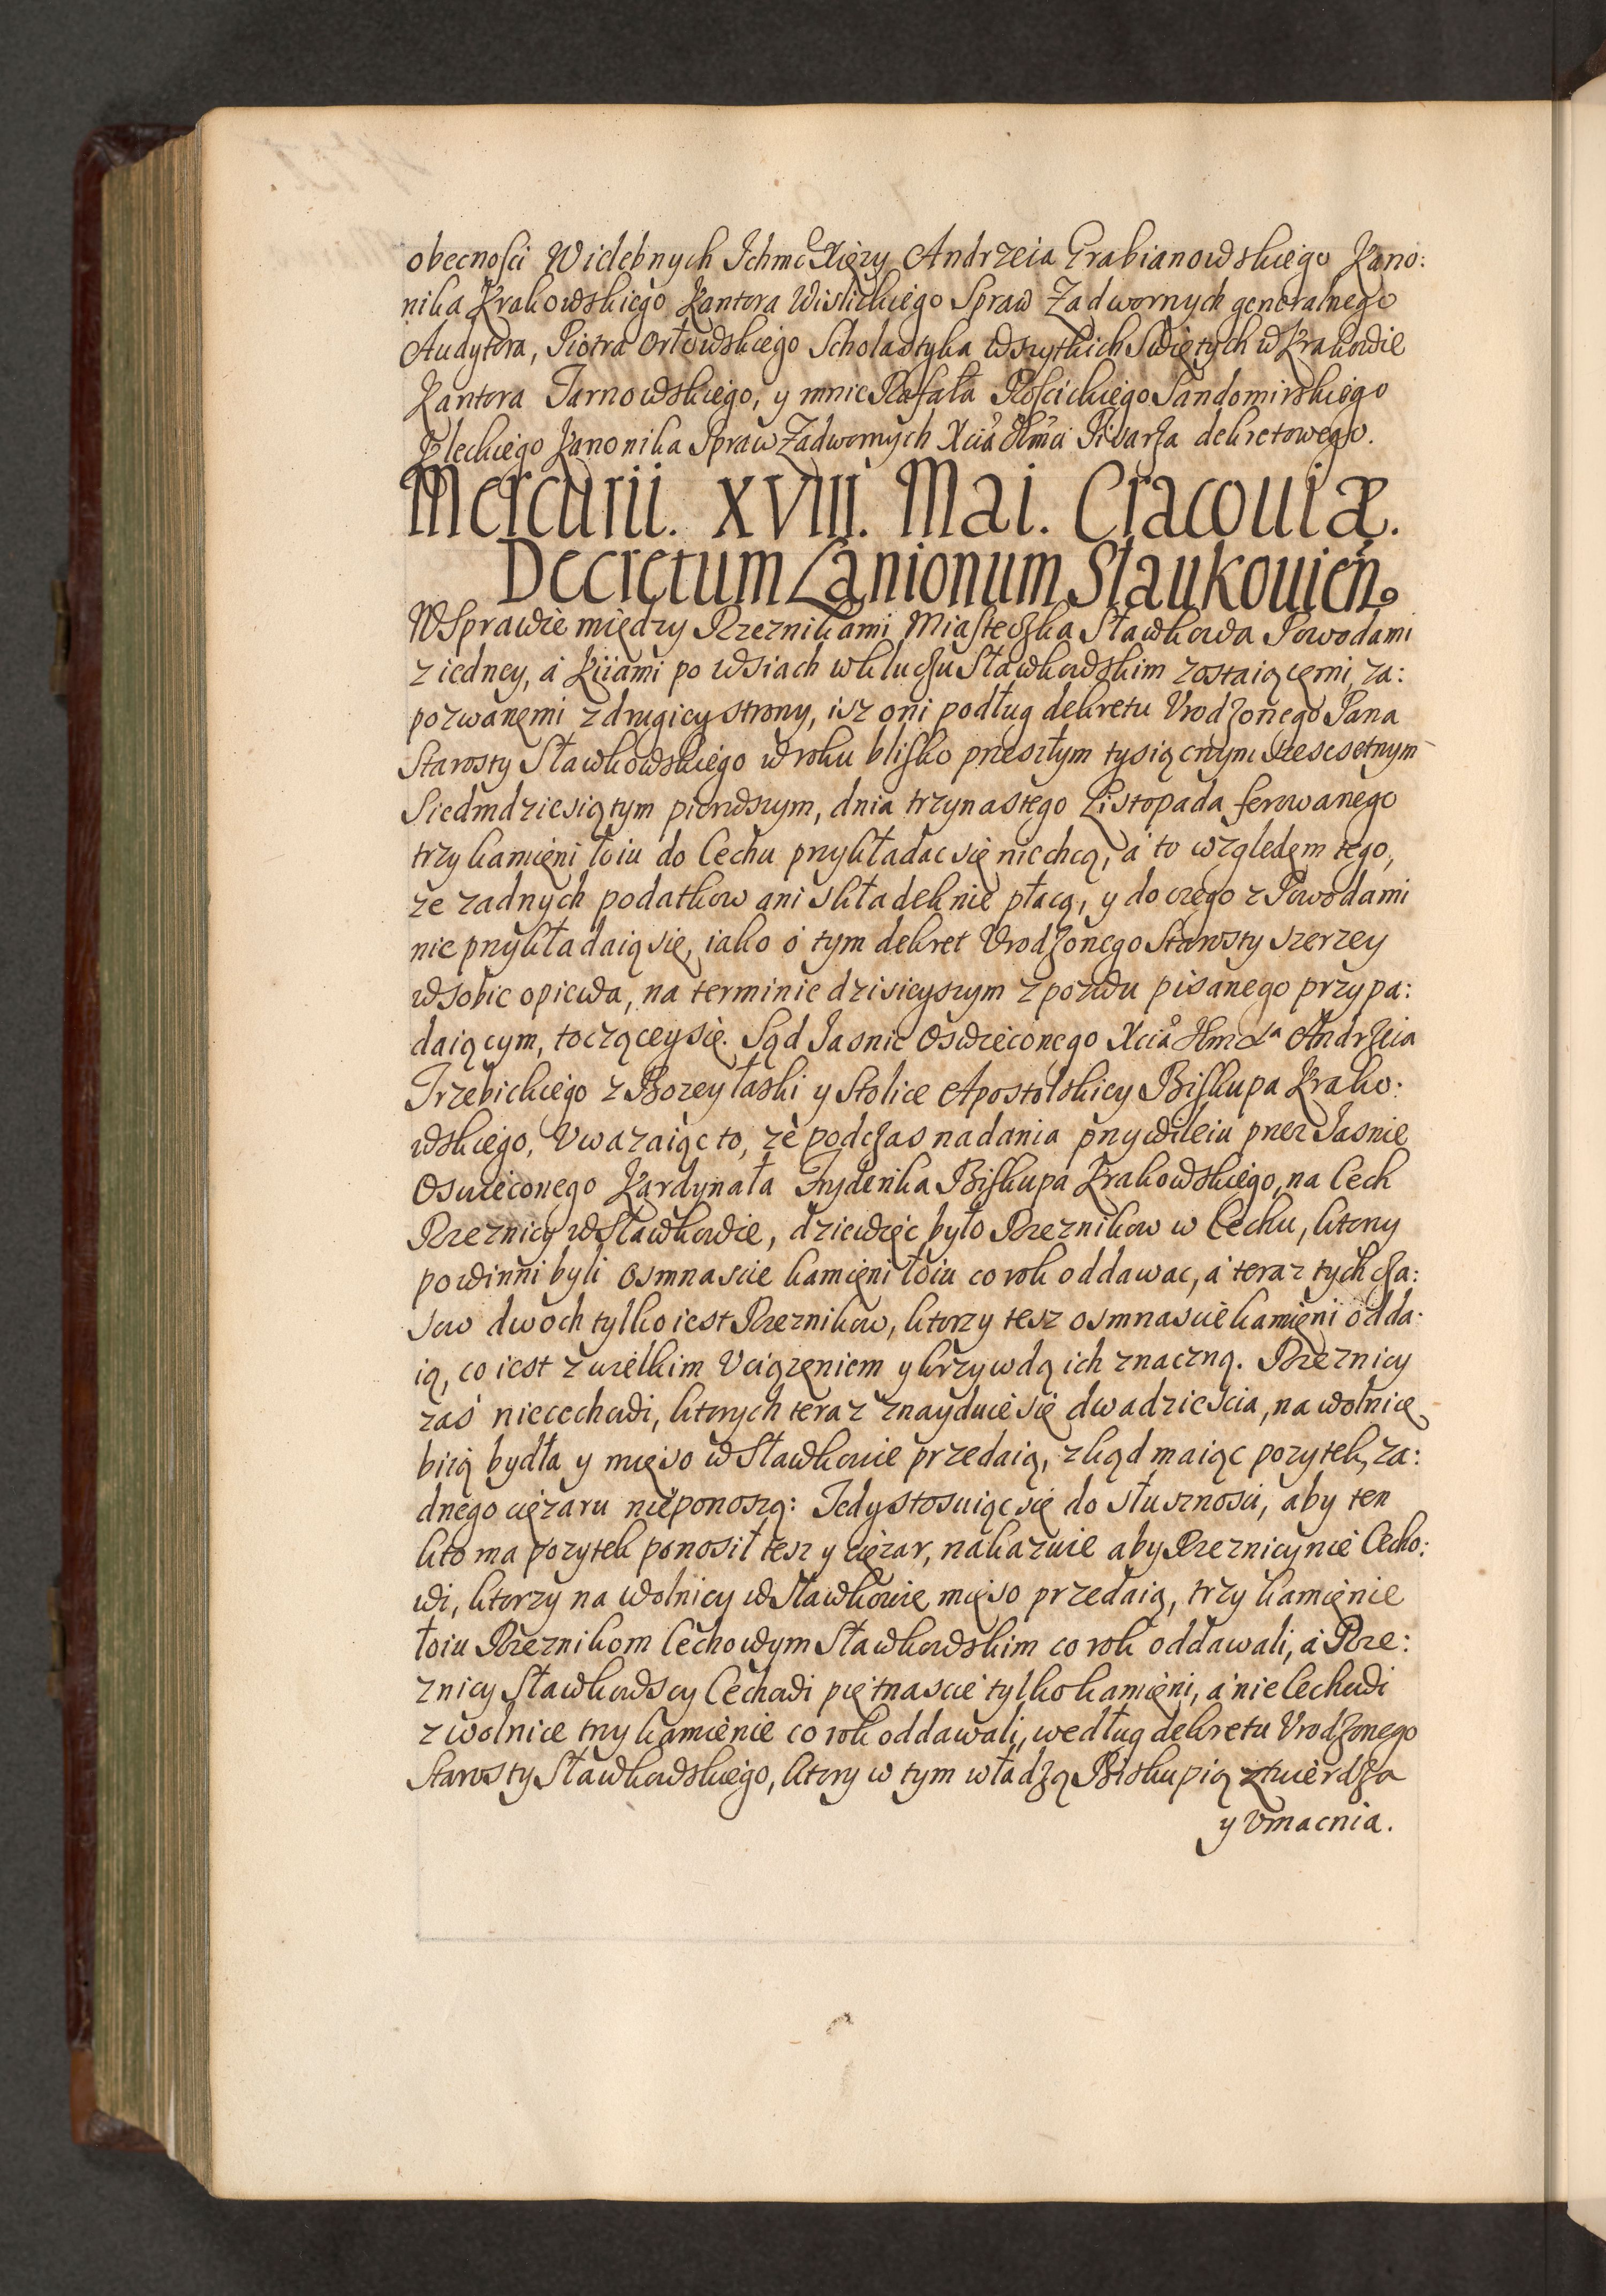 obecnosci Wielebnych Ichmć Xięzy Andrzeia Grabianowskiego Kano:
nika Krakowskiego Kantora Wislickiego Spraw Zadwornych generalnego
Audytora, Piotra Orłowskiego Scholastyka wszytkich Swiętych w Krakowie
Kantora Tarnowskiego, y mnie Rafała Roscickiego Sandomirskiego
Kieleckiego Kanonika Spraw Zadwornych Xcia Jmci Pisarza dekretowego.
Mercurii. XVIII. Mai. Cracouiæ.
Decretum Lanionum Slaukouien.
W Sprawie między Rzeznikami Miasteczka Sławkowa Powodami
z iedney, á Kiiami po wsiach w kluczu Sławkowskim zostaiącemi, za:
pozwanemi z drugiey strony, isz oni podług dekretu Vrodzonego Pana
Starosty Sławkowskiego w roku blisko przeszłym tysiącznym szescsetnym
Siedmdziesiątym pierwszym, dnia trzynastego Listopada ferowanego
trzy kamięni łoiu do Cechu przykładac się nie chcą, á to względem tego,
ze zadnych podatkow ani składek nie płacą, y do czego z Powodami
nie przykładaią się, iako o tym dekret Vrodzonego Starosty szerzey
w sobie opiewa, na terminie dzisieyszym z pozwu pisanego przypa:
daiącym, toczącey się. Sąd Iasnie Oswieconego Xcia Jmci Andrzeia
Trzebickiego z Bozey łaski y Stolice Apostolskiey Biskupa Krako:
wskiego, Vwazaiąc to, ze podczas nadania przywileiu przez Iasnie
Oswieconego Kardynała Fryderika Biskupa Krakowskiego, na Cech
Rzeznicy w Sławkowie, dziewięc było Rzeznikow w Cechu, ktorzy
powinni byli osmnascie kamięni łoiu co rok oddawac, á teraz tych cza:
sow dwoch tylko iest Rzeznikow, ktorzy tesz osmnascie kamięni odda:
ią, co iest z wielkim Vciązęniem y krzywdą ich znaczną. Rzeznicy
zaś niecechowi, ktorych teraz znayduie się dwadziescia, na wolnicę
biią bydła y mięso w Sławkowie przedaią, zkąd maiąc pozytek, za:
dnego cięzaru nieponoszą: Tedy stosuiąc się do słusznosci, aby ten
kto ma pozytek ponosił tesz y cięzar, nakazuie aby Rzeznicy nie Cecho:
wi, ktorzy na wolnicy w Sławkowie mięso przedaią, trzy kamięnie
łoiu Rzeznikom Cechowym Sławkowskim co rok oddawali, á Rze:
znicy Sławkowscy Cechowi piętnascie tylko kamięni, á nie Cechowi
z wolnice trzy kamienie co rok oddawali, według dekretu Vrodzonego
Starosty Sławkowskiego, ktory w tym władzą Biskupią ztwierdza
y vmacnia.